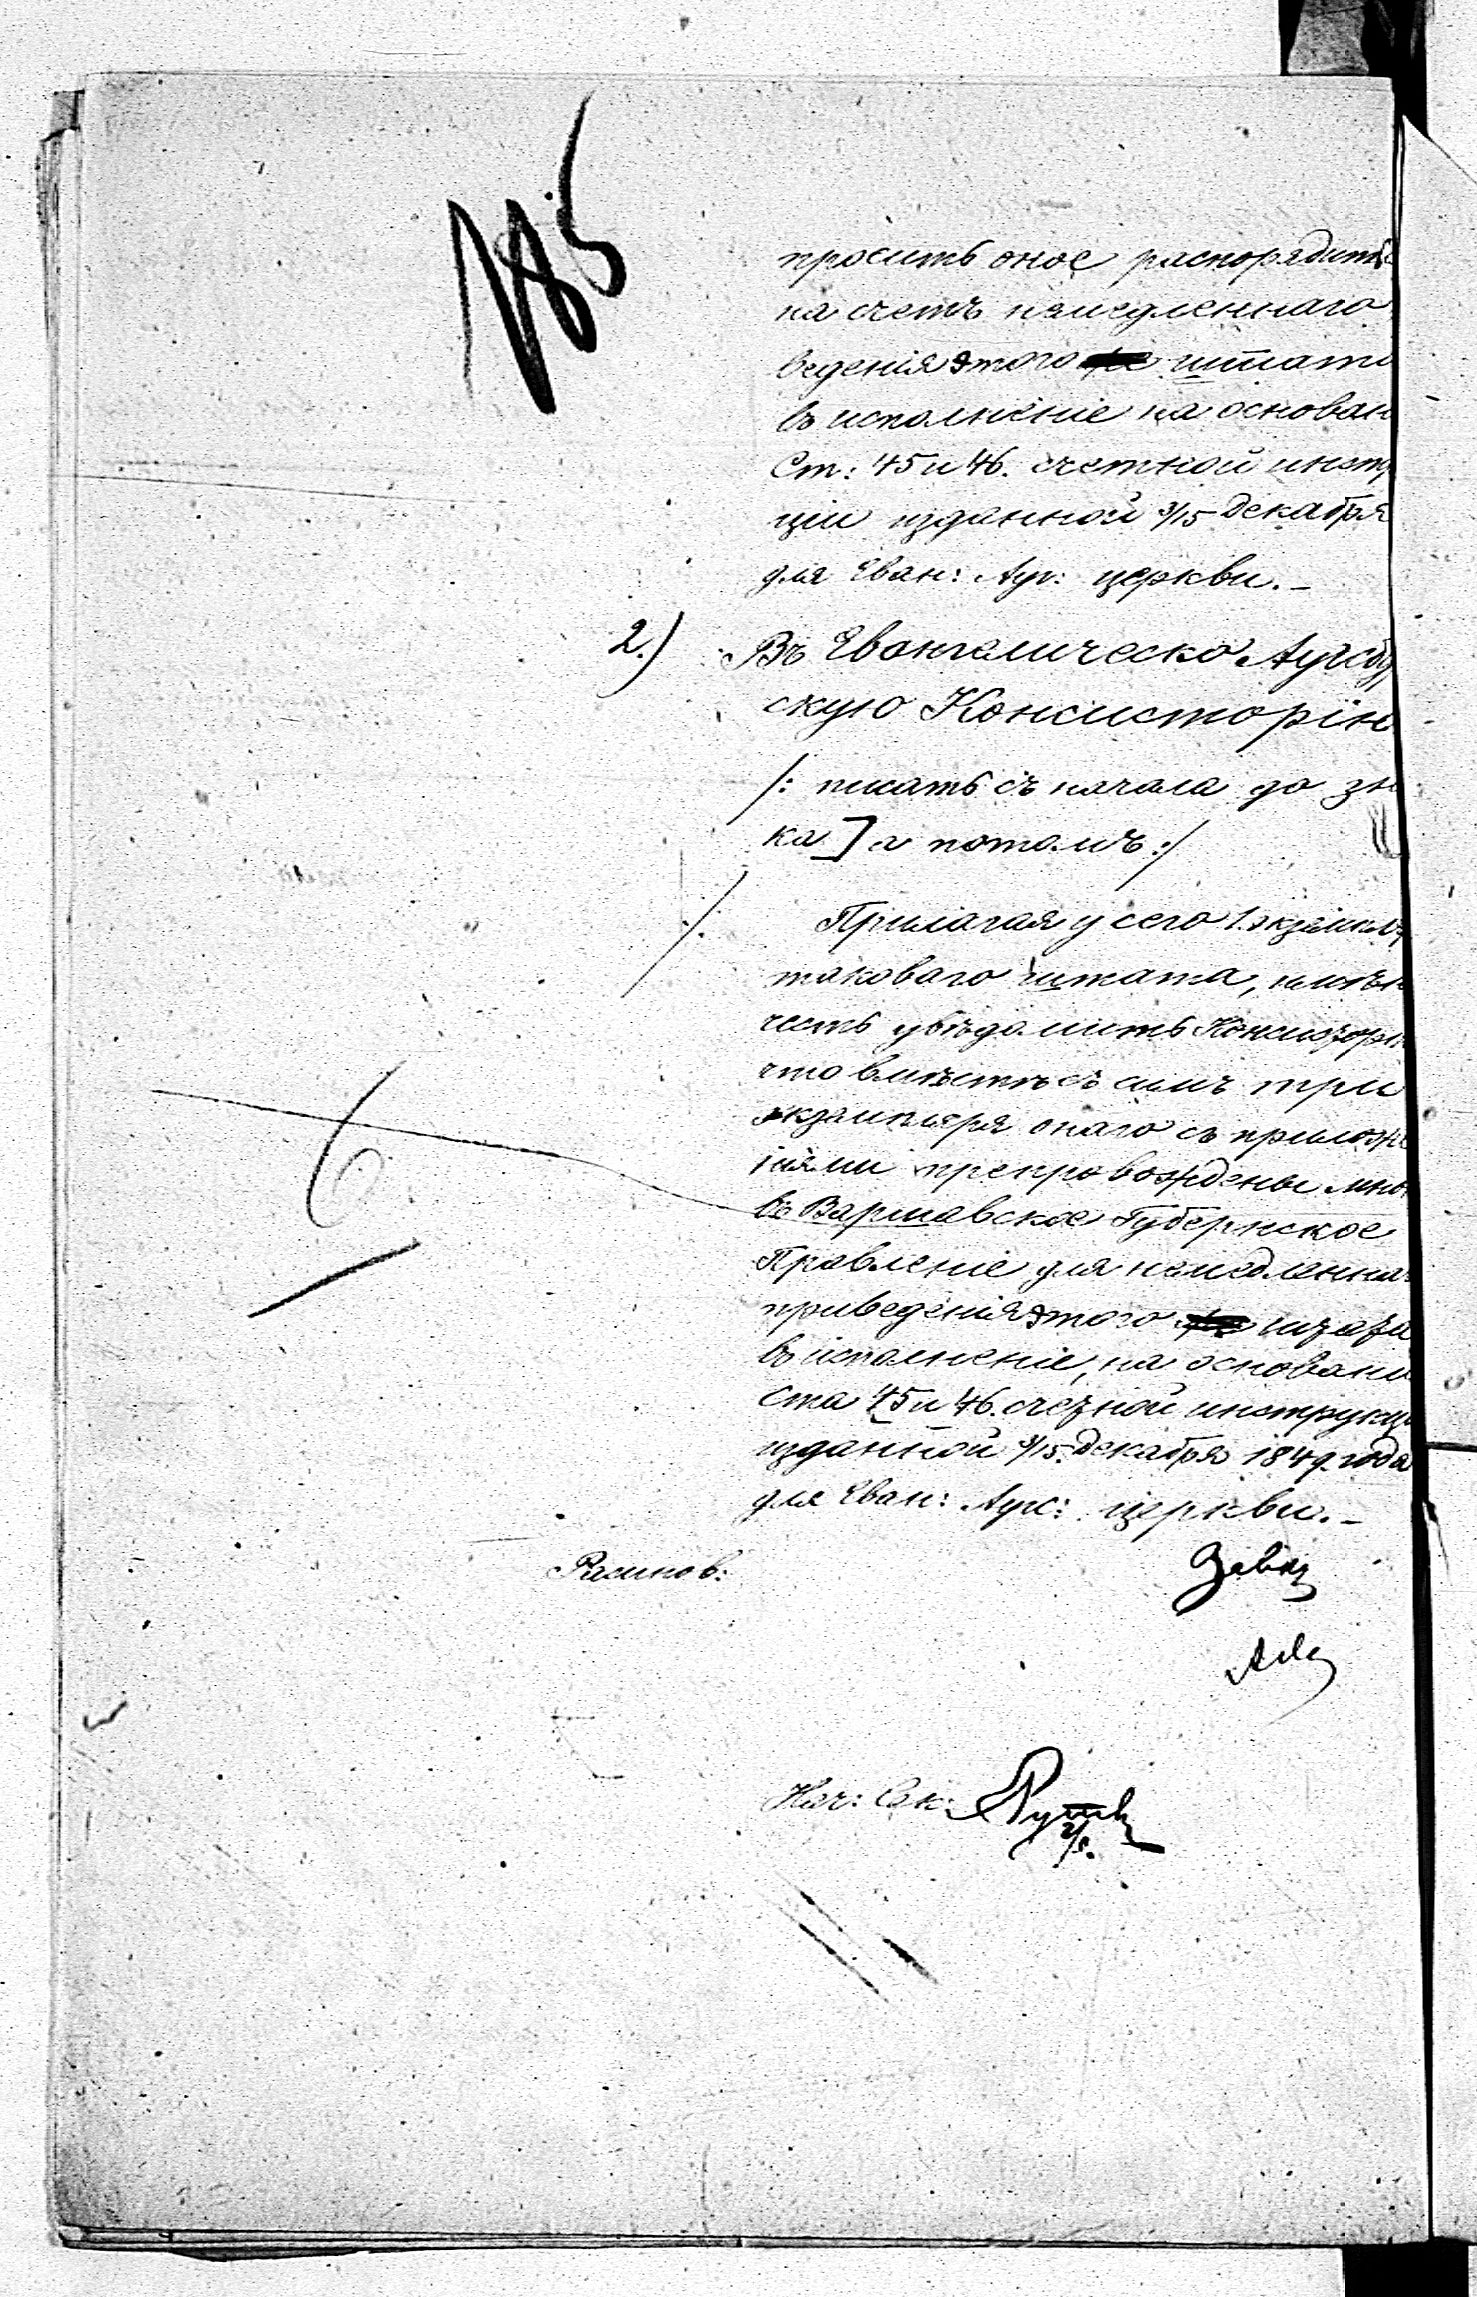 просить оное распорядить
на счетъ немедленнаго
веденія этого штата
въ исполненіе на основан
Ст: 45 и 46. счетной инстр
ціи изданной 3/15 Декабря
для Еван: Ауг: церкви. –
2.) Въ Евангелическо Аугсбу
скую Консисторію
/: писать съ начала до зн
ка ] а потомъ :/
Прилагая у сего 1. экземпл
таковаго штата, имѣю
честь увѣдомить Консистор
что вмѣстѣ съ симъ три
экземпляра онаго съ приложе
ніями препровождены мно
въ Варшавское Губернское
Правленіе для немедленна
приведенія этого штата
въ исполненіе, на основани
ста 45 и 46. счетной инструкц
изданной 3/15. Декабря 1849. года
для Еван: Ауг: церкви. –
Нач: Сек: